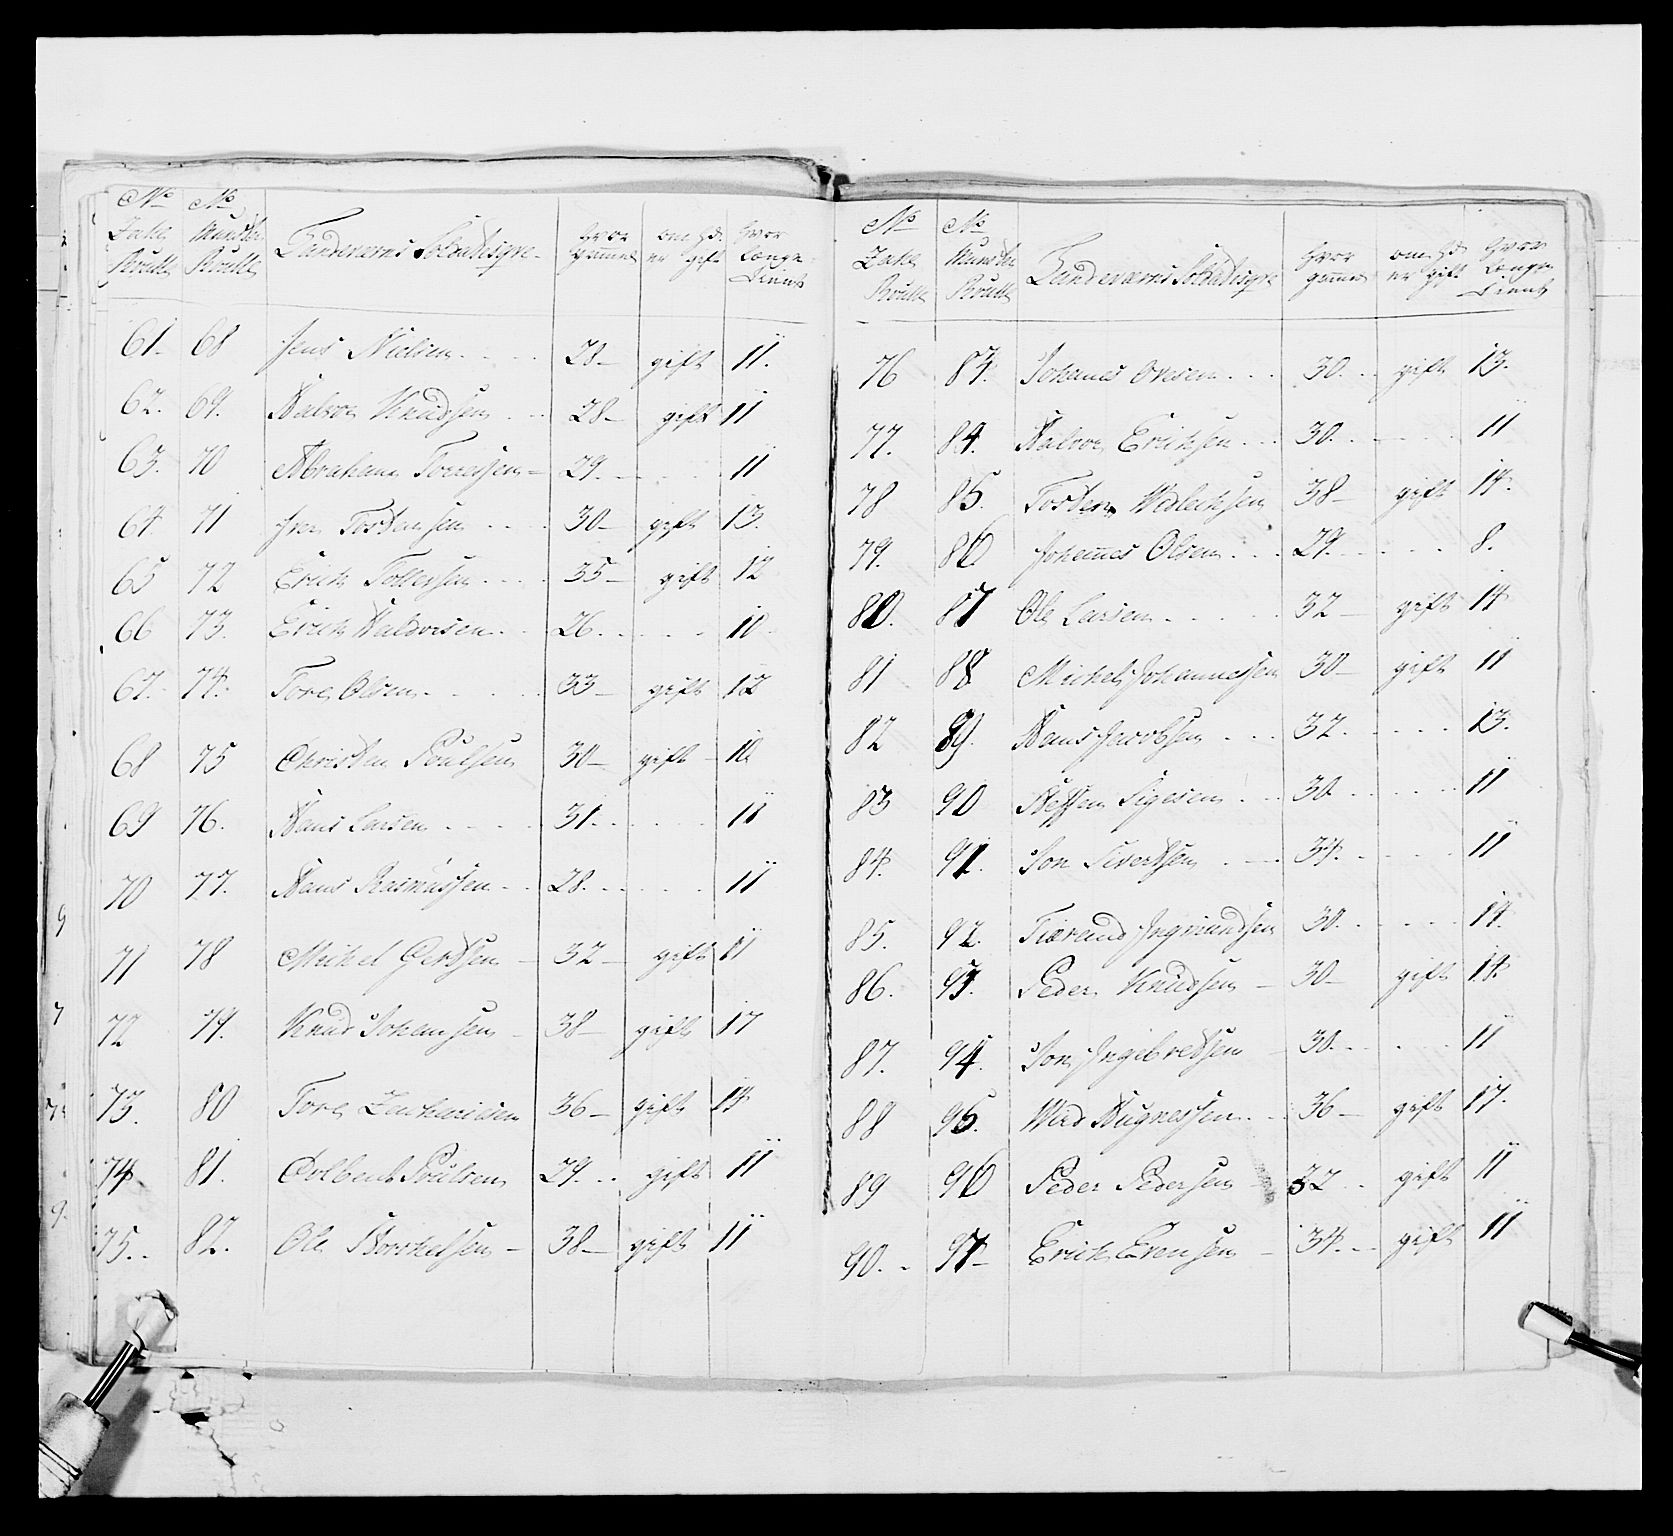 No No
Zahl Munster Landeværns Soldatesqve hvor om Hd. hvor
Roulle Roulle gammel er gift Længe
tient
61. 68 Jens Nielsen 28 gift 11.
62. 69. Halvor Knudsen 28 gift 11
63. 70 Abraham Torressen 29 11
64 71 Iver Tostensen 30 gift 13.
65 72 Erich Tollessen 35 gift 12
66 73. Erich Haldorsen 26 10
67. 74. Tore Olsen 33 gift 12
68 75 Christen Poulsen 30 gift 10
69 76. Hans Larsen 31 11
70 77. Hans Rasmussen 28 11
71 78 Michel Gertsen 32 gift 11
72 79. Knud Johansen 38 gift 17
73. 80 Tore Zachariasen 36 gift 14
74. 81. Colbent Poulsen 29 gift 11
75. 82. Ole Torkelsen 38 gift 11
No No
Zahl Munster Landeværns Soldatesqve hvor om Hd. hvor
Roulle Roulle gammel er gift Længe
tient
76 83. Johannes Ovesen 30 gift 13.
77. 84. Halvor Erichsen 30 11
78 85. Tosten Wedlechsen 38 gift 14.
79. 86 Johannes Olsen 29 8.
80. 87 Ole Larsen 32 gift 14
81 88 Michel Johannessen 30 gift 11
82 89. Hans Jacobsen 32 13.
83 90 Sigesen 30 11
84. 91. Jon Sivertsen 34 11
85. 92. Tiærand Ingmundsen 30 14.
86. 93. Peder Knudsen 30 gift 14.
87. 94. Jon Ingebretsen 30 11
88 95. Hugnessen 36 gift 17.
89 96 Peder Pedersen 32 gift 11
90. 97 Erich Evensen 34 gift 11